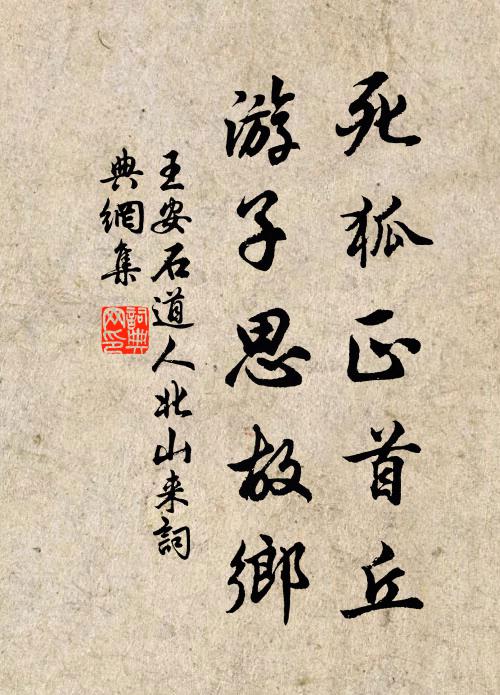 死狐正首丘
游子思故鄉
王安石道人北山来詞
典網集
詞典
网印